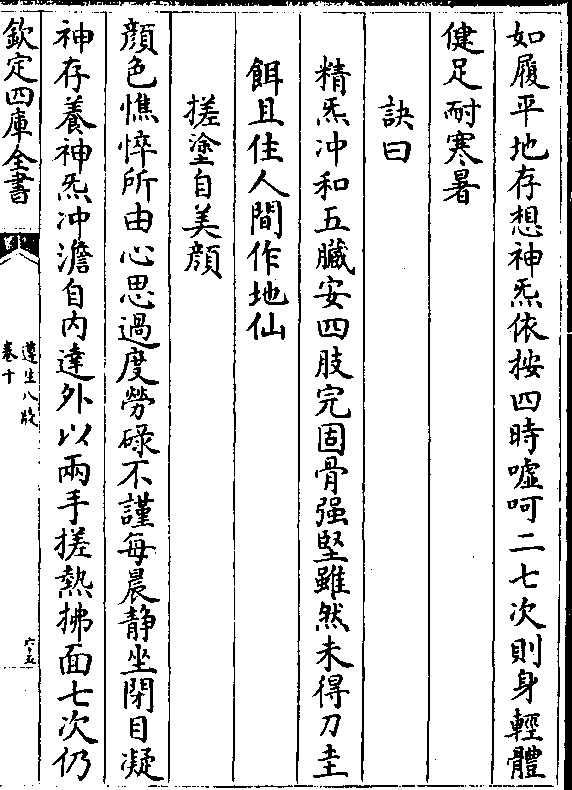 如履平地存想神炁依按四時噓呵二七次則身輕體
健足耐寒暑
訣曰
精炁冲和五臟安四肢完固骨强堅雖然未得刀圭
餌且住人間作地仙
搓塗自美顔
顔色憔悴所由心思過度勞碌不謹每晨静坐閉目凝
神存養神炁冲澹自内達外以兩手搓熱拂面七次仍
欽定四庫全書
遵生八牋
卷十
六十五